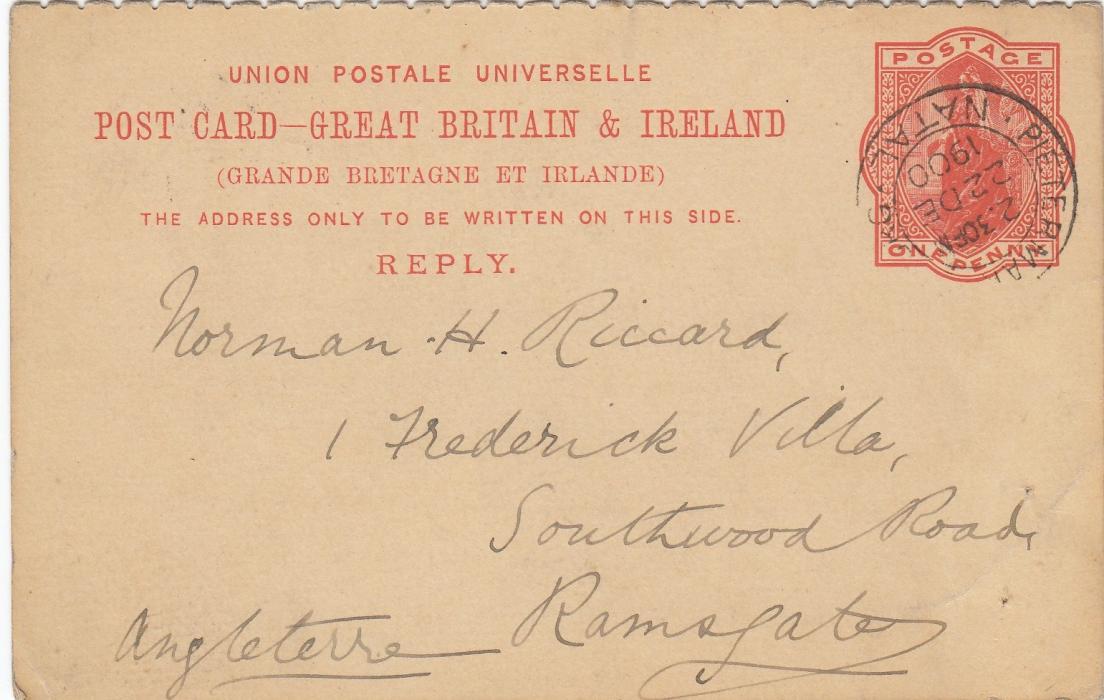 UNION POSTALE UNIVERSELLE
POST CARD—GREAT BRITAIN & IRELAND
(GRANDE BRETAGNE ET IRLANDE)
THE ADDRESS ONLY TO BE WRITTEN ON THIS SIDE.
REPLY.
POSTAGE
ONE PENNY
NATAL
2.30PM
22 DE
1900
Norman H. Riccard,
1 Frederick Villa,
Southwood Road,
Ramsgate
Angleterre